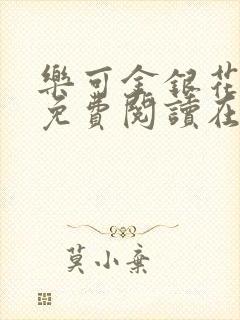 樂可金銀花
免費閱讀在
莫小棄